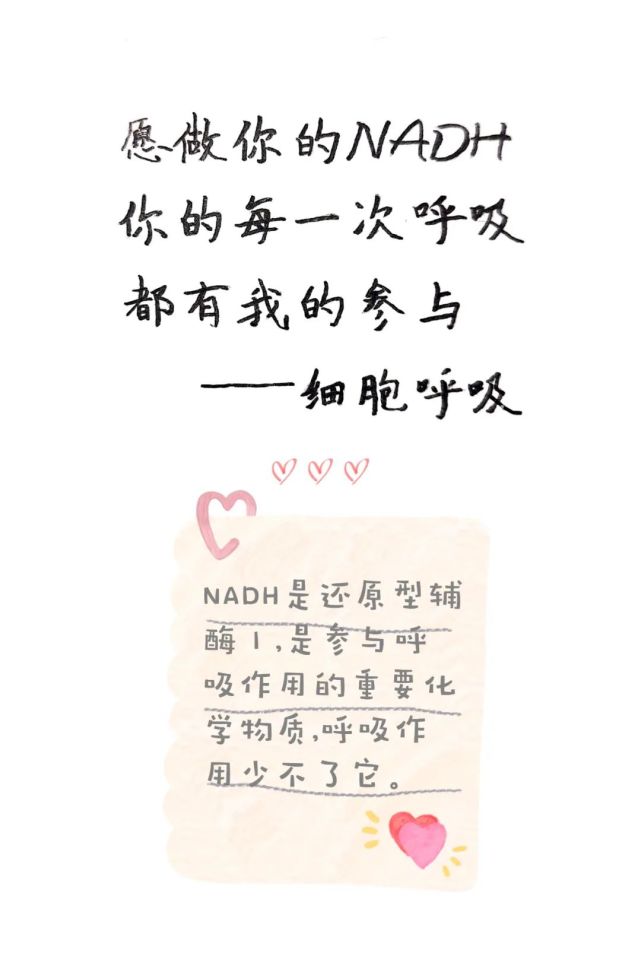 愿做你的NADH
你的每一次呼吸
都有我的参与
——细胞呼吸
NADH是还原型辅
酶I,是参与呼
吸作用的重要化
学物质,呼吸作
用少不了它。